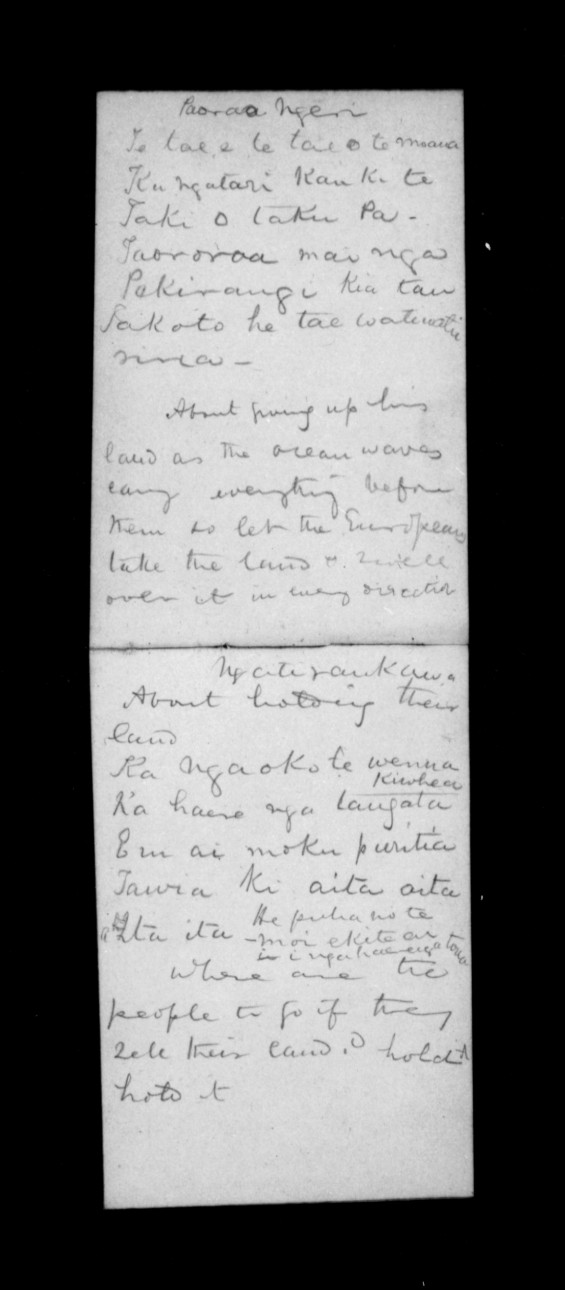 Paoraa Ngeri
Te tae e te tae o te moana
Ku ngatari Kau Ki te
Taki o taku Pa -
Taororoa mai nga
Pakirangi Kia tau
Takoto he tae
nina -
About giving up his
land as the ocean waves
carry everything before
them so let the Europeans
take the land & swell
over it in every direction
Ngatiraukawa
About holding their
land
Ka Ngaoko te wenua
Kiwhea
Ka haere nga tangata
E ru ai moku puritia
Tawia Ki aita aita
Ita ita - He puha no te
moi ekitear
i nga haerenga
Where are the
people to go if they
sell their land. O hold it
hold it